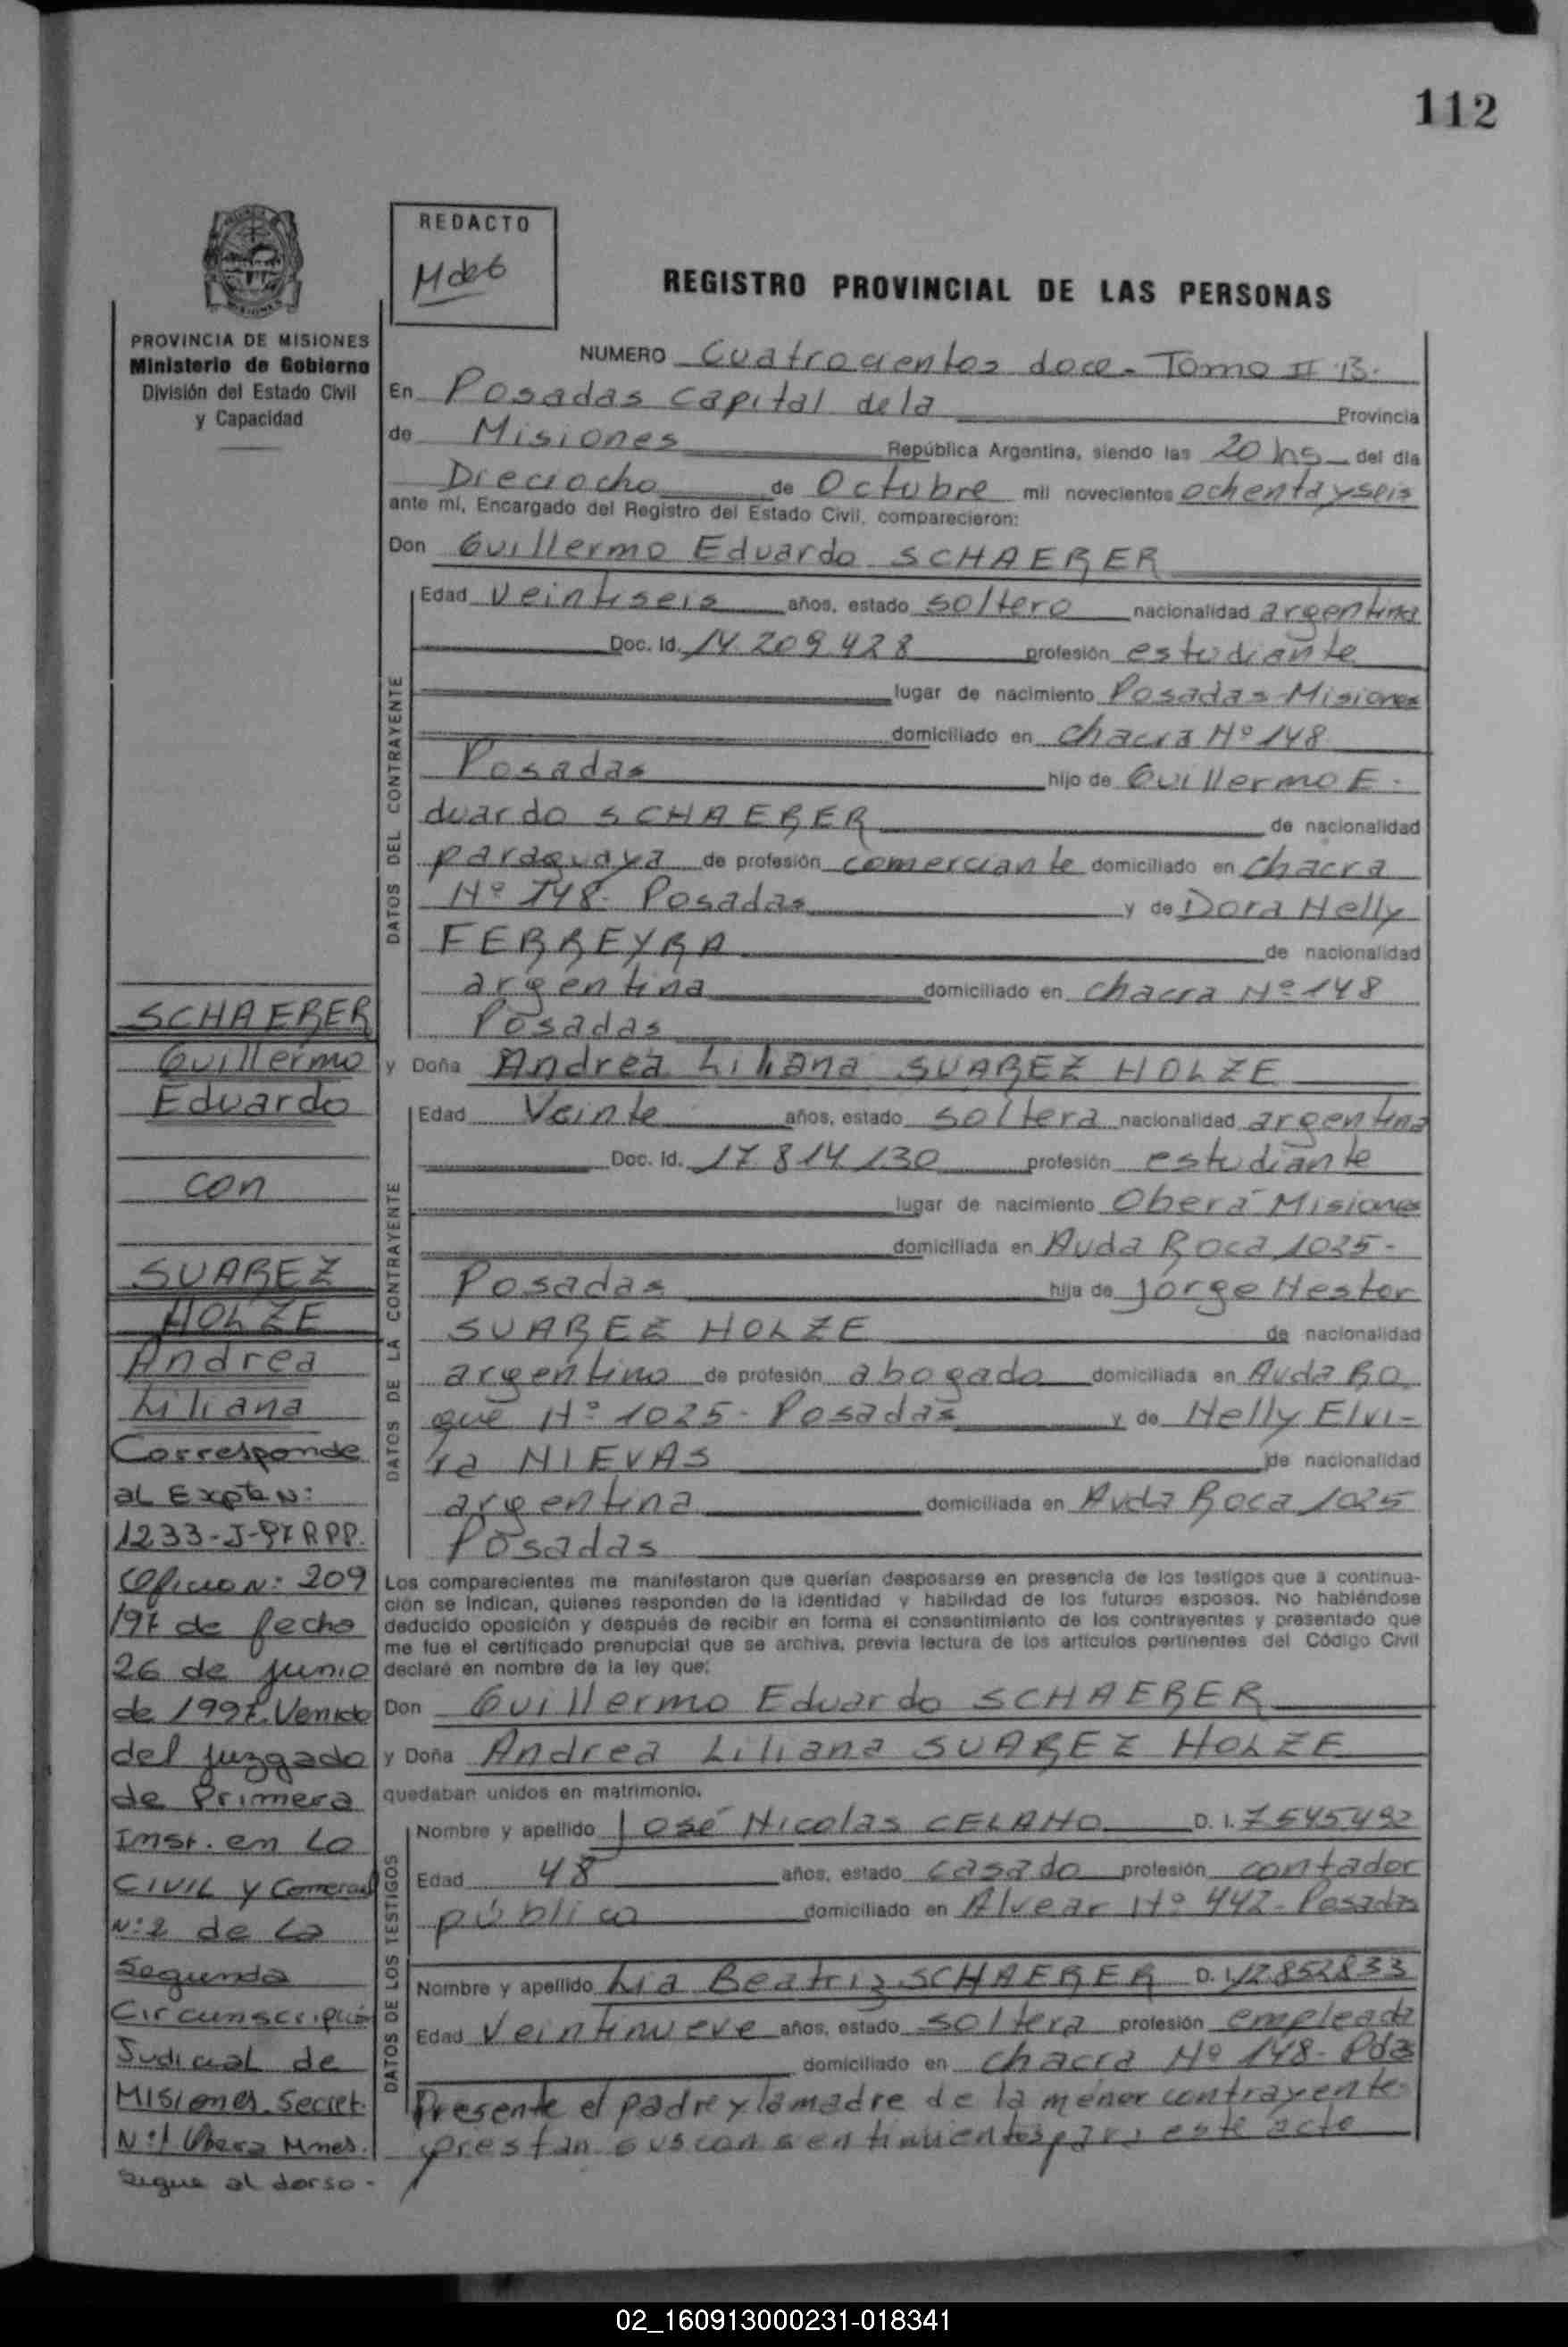 112
REDACTO
REGISTRO PROVINCIAL DE LAS PERSONAS
PROVINCIA DE MISIONES
Ministerio de Gobierno
División del Estado Civil
y Capacidad
NUMERO Cuatrocientos doce - Tomo II B.
En Posadas capital de la Provincia
de Misiones República Argentina, siendo las 20 hs del día
Dieciocho de Octubre mil novecientos ochenta y seis
ante mí, Encargado del Registro del Estado Civil, comparecieron:
Don Guillermo Eduardo SCHAERER
DATOS DEL CONTRAYENTE
Edad veintiseis años, estado soltero nacionalidad argentina
Doc. Id. 14.209.428 profesión estudiante
lugar de nacimiento Posadas-Misiones
domiciliado en chacra Nº 148
Posadas hijo de Guillermo E-
duardo SCHAERER de nacionalidad
paraguaya de profesión comerciante domiciliado en chacra
Nº 148- Posadas y de Dora Nelly
FERREYRA de nacionalidad
argentina domiciliado en chacra Nº 148
Posadas
y Doña Andrea Liliana SUAREZ HOLZE
DATOS DE LA CONTRAYENTE
Edad Veinte años, estado soltera nacionalidad argentina
Doc. Id. 17.814.130 profesión estudiante
lugar de nacimiento Oberá-Misiones
domiciliada en Avda Roca 1025-
Posadas hija de Jorge Nestor
SUAREZ HOLZE de nacionalidad
argentino de profesión abogado domiciliada en Avda Ro
que Nº 1025- Posadas y de Nelly Elvi-
ra NIEVAS de nacionalidad
argentina domiciliada en Avda Roca 1025
Posadas
Los comparecientes me manifestaron que querían desposarse en presencia de los testigos que a continua-
ción se indican, quienes responden de la identidad y habilidad de los futuros esposos. No habiéndose
deducido oposición y después de recibir en forma el consentimiento de los contrayentes y presentado que
me fue el certificado prenupcial que se archiva, previa lectura de los artículos pertinentes del Código Civil
declaré en nombre de la ley que:
Don Guillermo Eduardo SCHAERER
y Doña Andrea Liliana SUAREZ HOLZE
quedaban unidos en matrimonio.
DATOS DE LOS TESTIGOS
Nombre y apellido José Nicolas CELANO D. I. 7545492
Edad 48 años, estado casado profesión contador
público domiciliado en Alvear Nº 442- Posadas
Nombre y apellido Lia Beatriz SCHAERER D. I. 12852833
Edad Veintinueve años, estado soltera profesión empleada
domiciliado en chacra Nº 148- Pdas
Presente el padre y la madre de la menor contrayente
prestan sus consentimientos para este acto
SCHAERER
Guillermo
Eduardo
con
SUAREZ
HOLZE
Andrea
Liliana
Corresponde
al Expte N:
1233-J-97 RPP.
Oficio N: 209
197 de fecha
26 de junio
de 1997. Venido
del juzgado
de Primera
Inst. en lo
CIVIL y Comercial
N:2 de la
Segunda
Circunscripción
Judicial de
Misiones. Secret.
N:1 Obera Mnes.
Sigue al dorso-
02_160913000231-018341